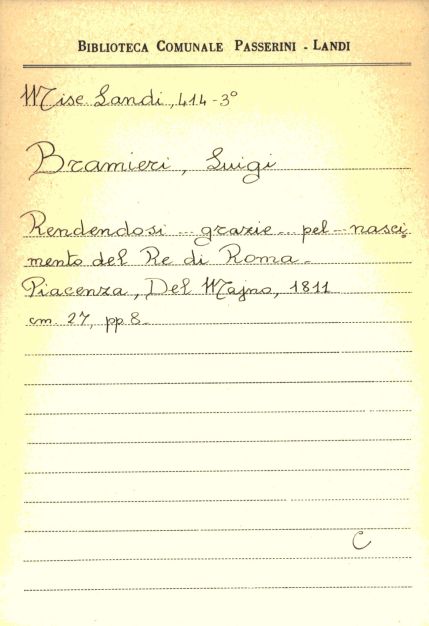 BIBLIOTECA COMUNALE PASSERINI - LANDI
Misc Landi, 414-3°
Bramieri, Luigi
Rendendosi ... grazie ... pel ... nasci-
mento del Re di Roma.
Piacenza, Del Majno, 1811
cm. 27, pp 8.
C